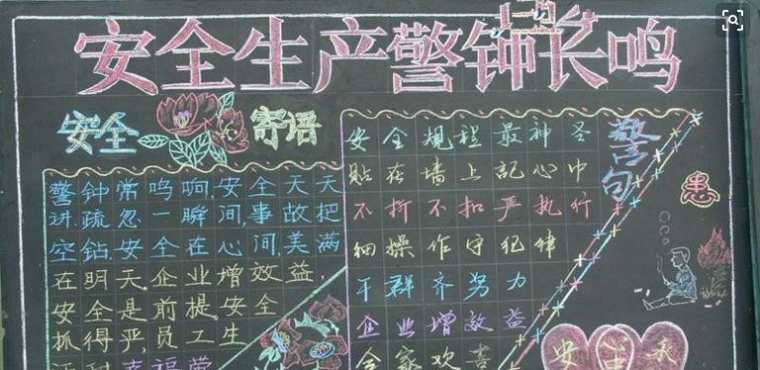 安全生产警钟长鸣
安全
寄语
警钟常鸣响,安全天天
讲,疏忽一瞬间,事故把
空钻,安全在心间,美满
在明天,企业增效益,
安全是前提,安全
抓得严,员工生
幸福
安全规程最神圣
贴在墙上記心中
不折不扣严执行
细操作守纪律
干群齐努力
企业增效益
合家欢喜
警句
患
安
永